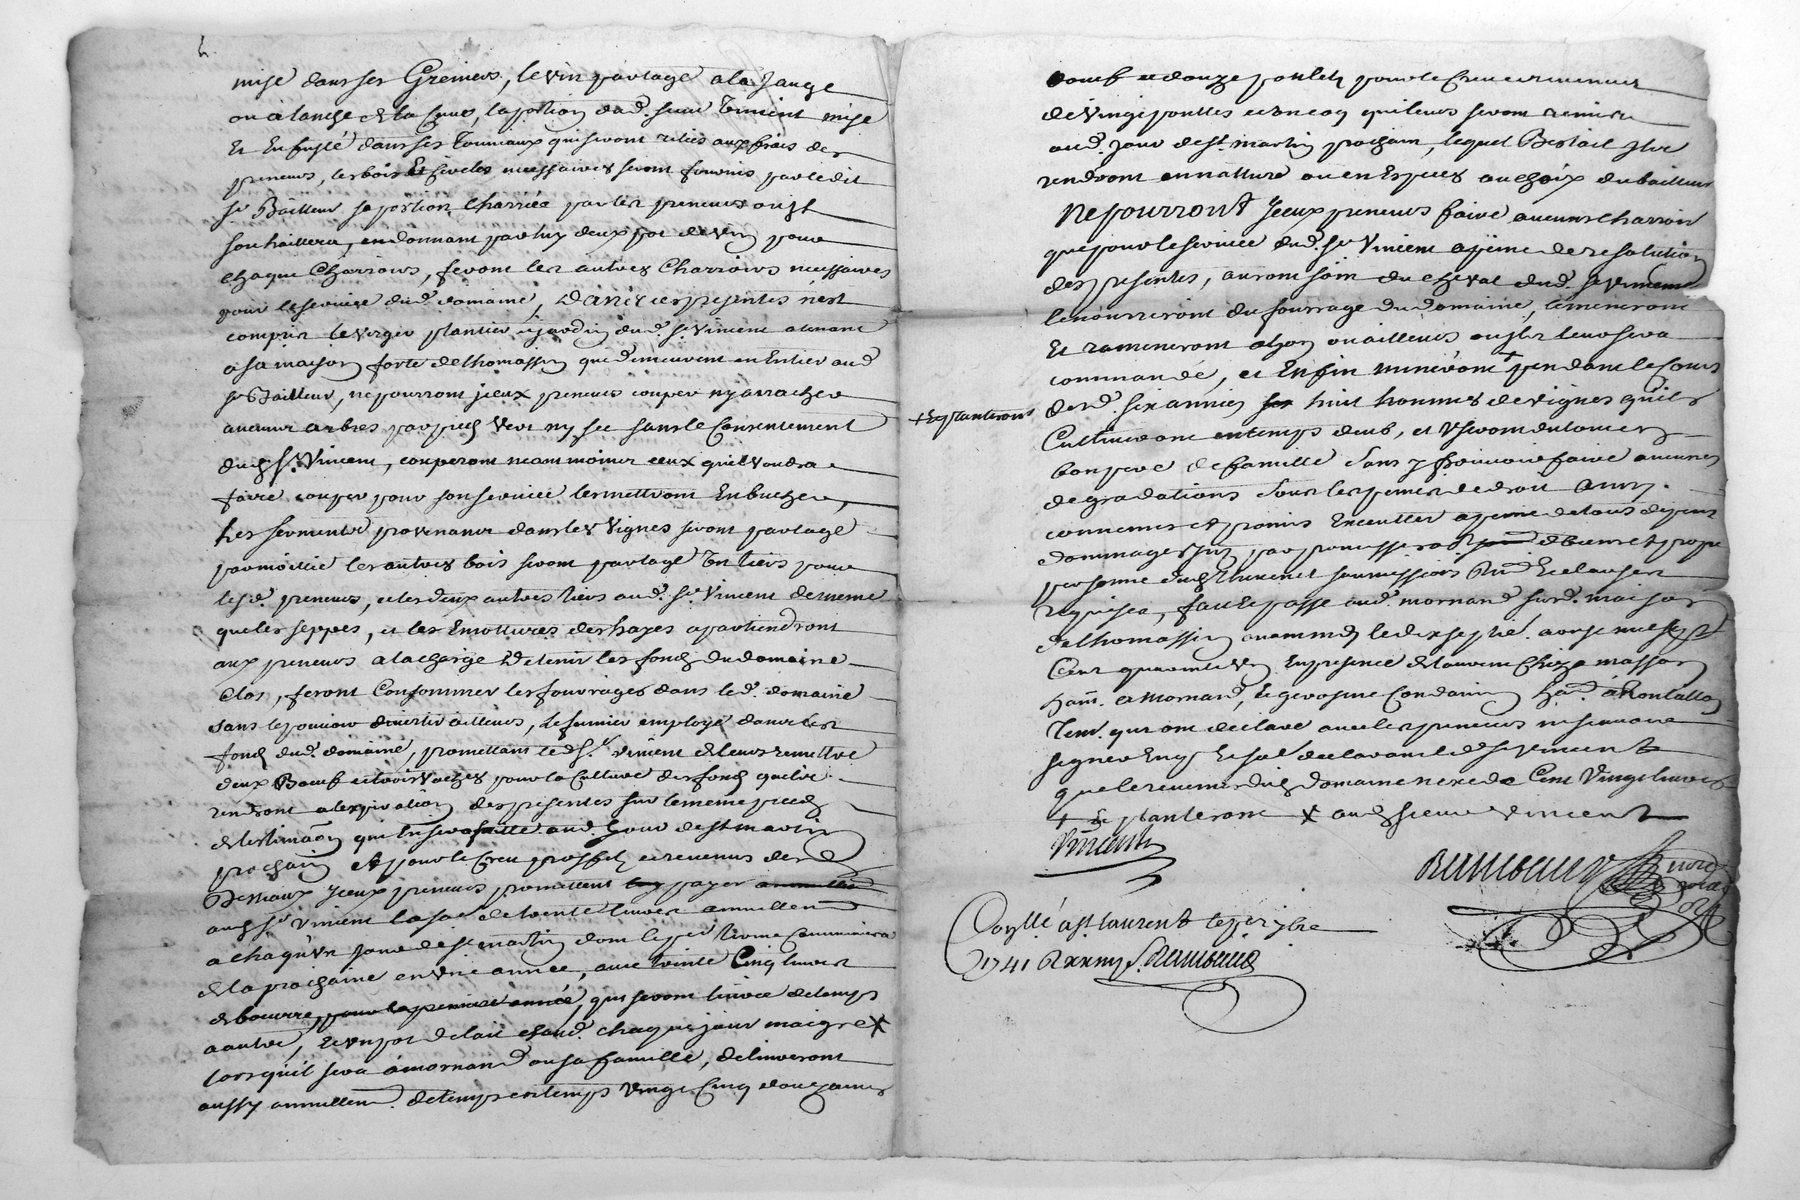 mise dans ses Greniers, le vin partagé a la Jauge
ou a lanche de la Cuve, la portion dud. sieur Vincent mise
Et Enfusté dans ses Tonneaux qui seront reliés aux frais des
preneurs, les bois Et sercles necessaires seront fournis par ledit
sr. Bailleur sa portion Charriée par les preneurs ou Jl
souhaittera, en donnant par luy deux pot de vin pour
chaque Charrois, feront les autres Charrois necessaires
pour le service dud. domaine, dans ces presentes n'est
compris le verger plantier & jardin dud. sr. Vincent atenant
a sa maison forte de lhomassin qui demeurent en Entier aud.
sr. Bailleur, ne pourront jceux preneurs couper ny arracher
aucuns arbres par pied vert ny sec sans le Consentement
dud. sr. Vincent, couperont neanmoins ceux quil voudra
faire couper pour son service les mettront En bucher,
Les serments provenant dans les Vignes seront partagé
par moittié les autres bois seront partagé En tiers pour
lesd. preneurs, et les deux autres tiers aud. sr. Vincent de meme
que les seppes, et les Emottures des hayes apartiendront
aux preneurs a la charge de tenir les fonds du domaine
Clos, feront Consommer les fourrages dans led. domaine
sans les pouvoir divertir ailleurs, le fumier employé dans les
fonds dud. domaine, promettant led. sr. Vincent de leurs remettre
deux Bœufs et trois vaches pour la Culture des fonds quils
rendront a lexpiration des presentes sur le meme pied
destimaõn qui En sera faitte aud. Jour de st martin
prochain Et pour le Creu proffit et revenus desd.
Bestiaux jceux preneurs promettent payer
aud. sr. Vincent la so. de trente livres annuellemt
a chaqu'un jour de st martin dont le pr. terme Commencera
de la prochaine en une année, avec trente Cinq livres
de beurre, qui seront livrée de temps
a autre, Et un pot de lait chaud. chaque jour maigre X
lors quil sera a mornand ou sa famille, delivreront
aussy annuellemt. de temps en temps Vingt Cinq douzaines
œufs et douze poulets pour le Creu et revenus
de vingt poulles et un coq qui leurs seront remis
aud. Jour de st. martin prochain, lequel Bestail Jls
rendront en nature ou en Especes au choix du bailleur
Ne pourront Jceux preneurs faire aucuns Charrois
que pour le service dud. sr. Vincent a peine de resolution
des presentes, auront soin du cheval dud. sr. Vincent
le nourriront du fourrage du domaine, le meneront
Et rameneront a lyon ou ailleurs ou Jl leur sera
commandé, et Enfin mineront + pendant le Cours
+ Et planteront
desd. six années huit hommes de vignes quils
Cultiveront en temps deub, et useront du tout en
bon pere de famille sans y pouvoir faire aucunes
degradations sous les peines de droit Ainsy
convenus et promis Executter a peine de tous depens
dommages Jnts par promesse de biens et propre
personne
requises, fait et passé aud. mornand sur d. maison
de lhomassin avant midy le dix septe. aoust mil sept
Cent quarante un En presence de laurent Chize masson
hant. a Mornand, Et gervaise Condamin hant. a Rontallon
Tem. qui ont declaré avec les preneurs ne scavoir
signer Enquis Et led. declarant led. sr. Vincent
que le revenu dud. domaine nexede Cent Vingt livres
+ Et planteront X aud. sieur Vincent
Vincent
Raimbaud
Conllé a st. laurent le pr. 7bre
1741
Raimbaud